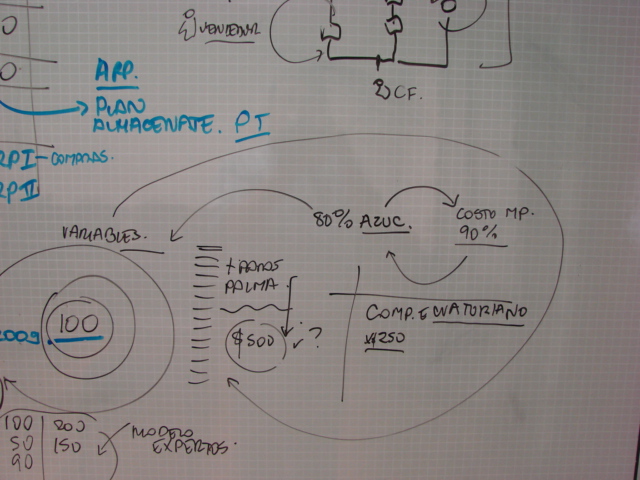 0
0
VENDEDOR
CF.
ARP.
PLAN
ALMACENATE. PT
RPI - COMPRAS.
RPII
VARIABLES.
80% AZUC.
COSTO MP.
90%
PALMA
$500 ✓ ?
COMP. ECUATORIANO
$250
2009. 100
100 | 200
50 | 150
90
MODELO
EXPERTOS.